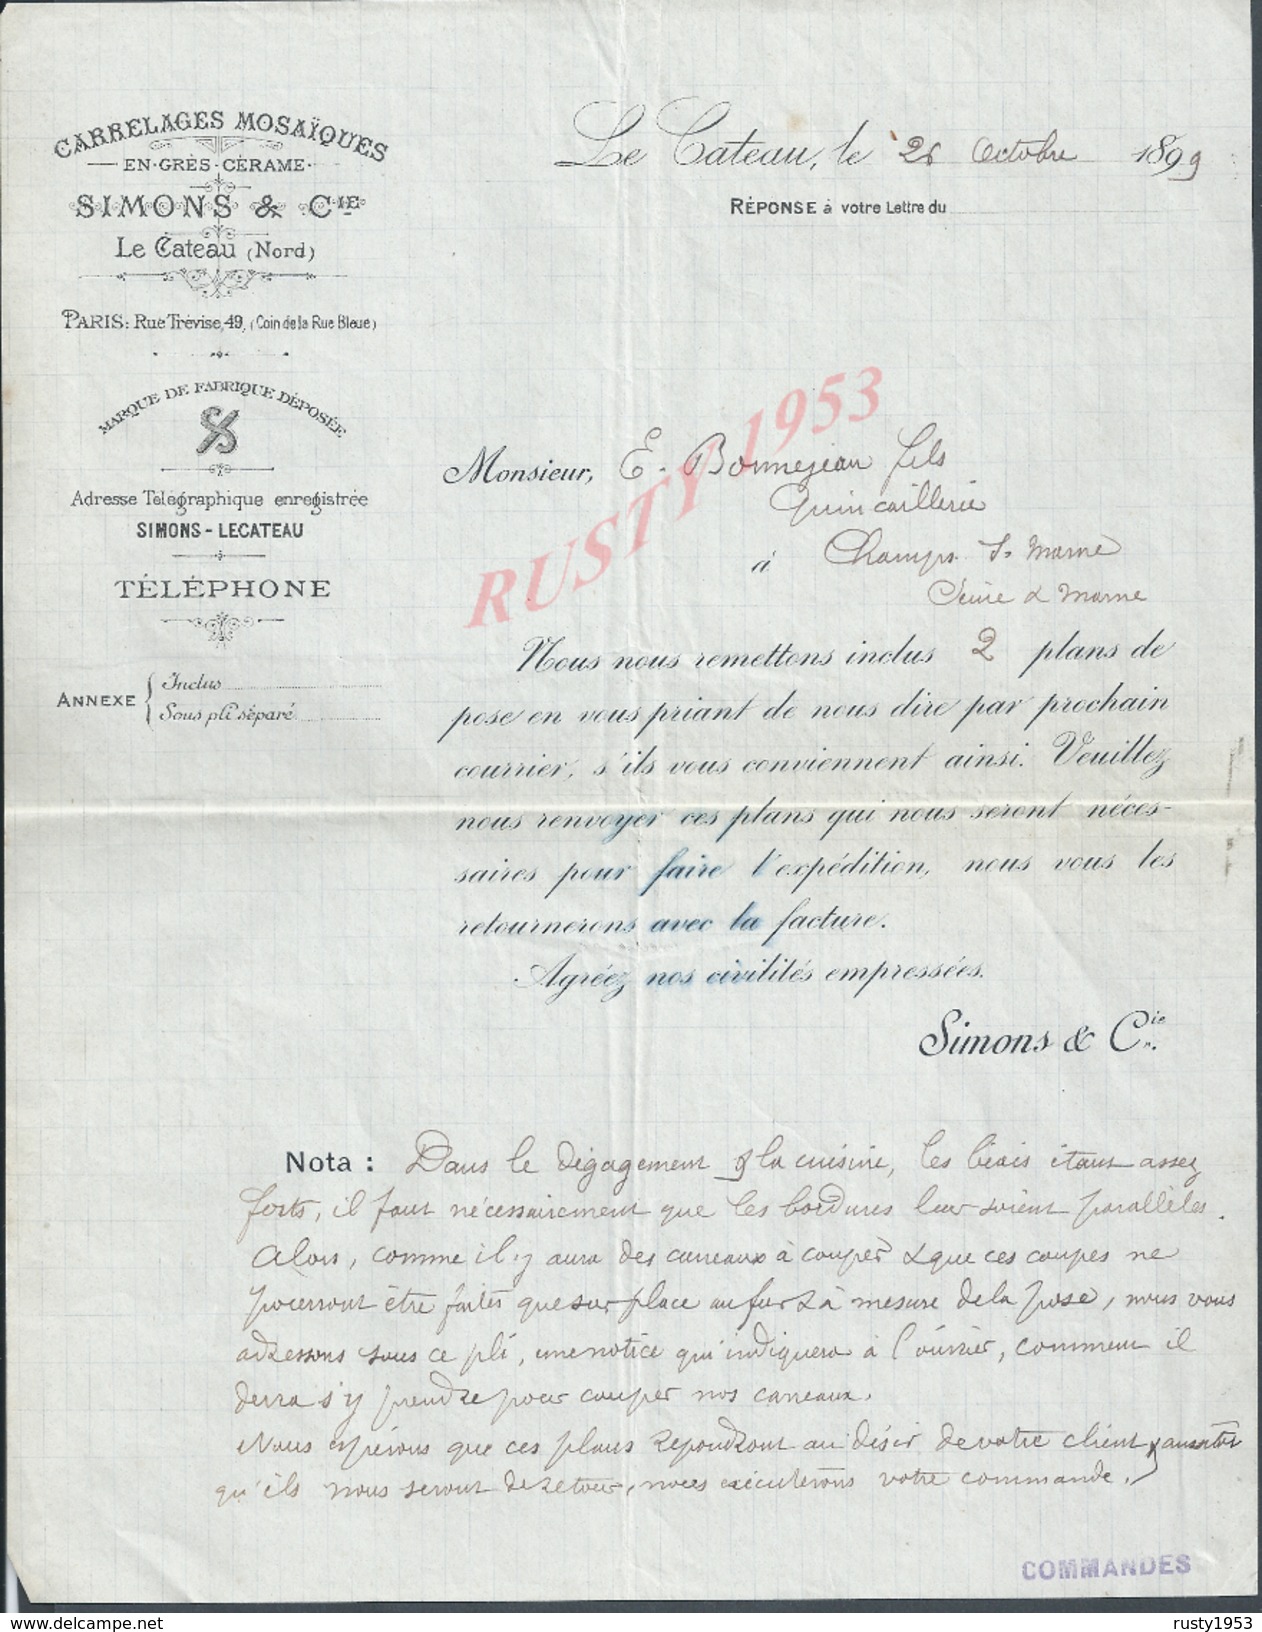 CARRELAGES MOSAÏQUES
EN·GRÈS·CÉRAME·
SIMONS & CIE
Le Cateau (Nord)
PARIS: Rue Trévise, 49, (Coin de la Rue Bleue)
MARQUE DE FABRIQUE DÉPOSÉE
Adresse Télégraphique enregistrée
SIMONS - LECATEAU
TÉLÉPHONE
ANNEXE { Inclus
Sous pli séparé
Le Cateau, le Octobre 1899
RÉPONSE à votre Lettre du
Monsieur, E. Bonnejean fils
Quincaillerie
à Champs s. Marne
Seine & Marne
Nous nous remettons inclus 2 plans de
pose en vous priant de nous dire par prochain
courrier, s'ils vous conviennent ainsi. Veuillez
nous renvoyer ces plans qui nous seront néces-
saires pour faire l'expédition, nous vous les
retournerons avec la facture.
Agréez nos civilités empressées.
Simons & Cie.
Nota : Dans le dégagement & la cuisine, les biais étant assez
forts, il faut nécessairement que les bordures leur soient parallèles.
Alors, comme il y aura des carreaux à couper & que ces coupes ne
pourront être faites que sur place au fur & à mesure de la pose, nous vous
adressons sous ce pli, une notice qui indiquera à l'ouvrier, comment il
devra s'y prendre pour couper nos carreaux.
Nous espérons que ces plans répondront au désir de votre client & aussitôt
qu'ils nous seront de retour, nous exécuterons votre commande.
COMMANDES
RUSTY 1953
rusty1953